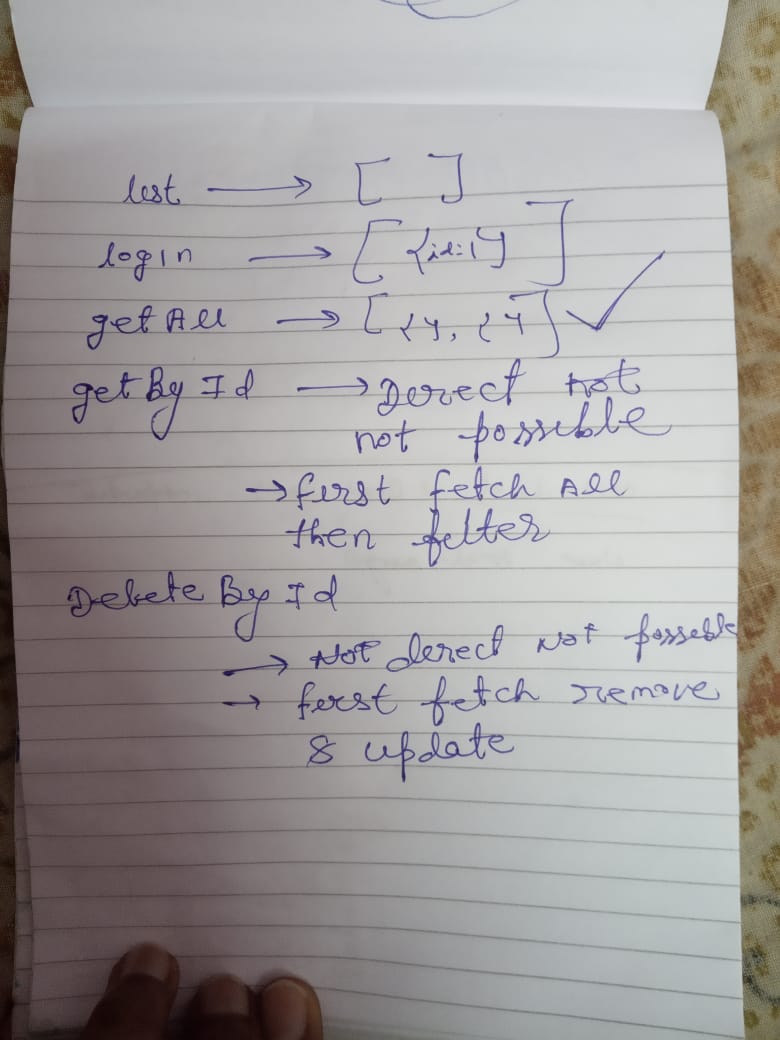 list → [ ]
login → [ {id:1} ]
get All → [ {}, {} ] ✓
get By Id → Direct not
not possible
→ first fetch All
then filter
Delete By Id
→ Not direct not possible
→ first fetch remove
& update